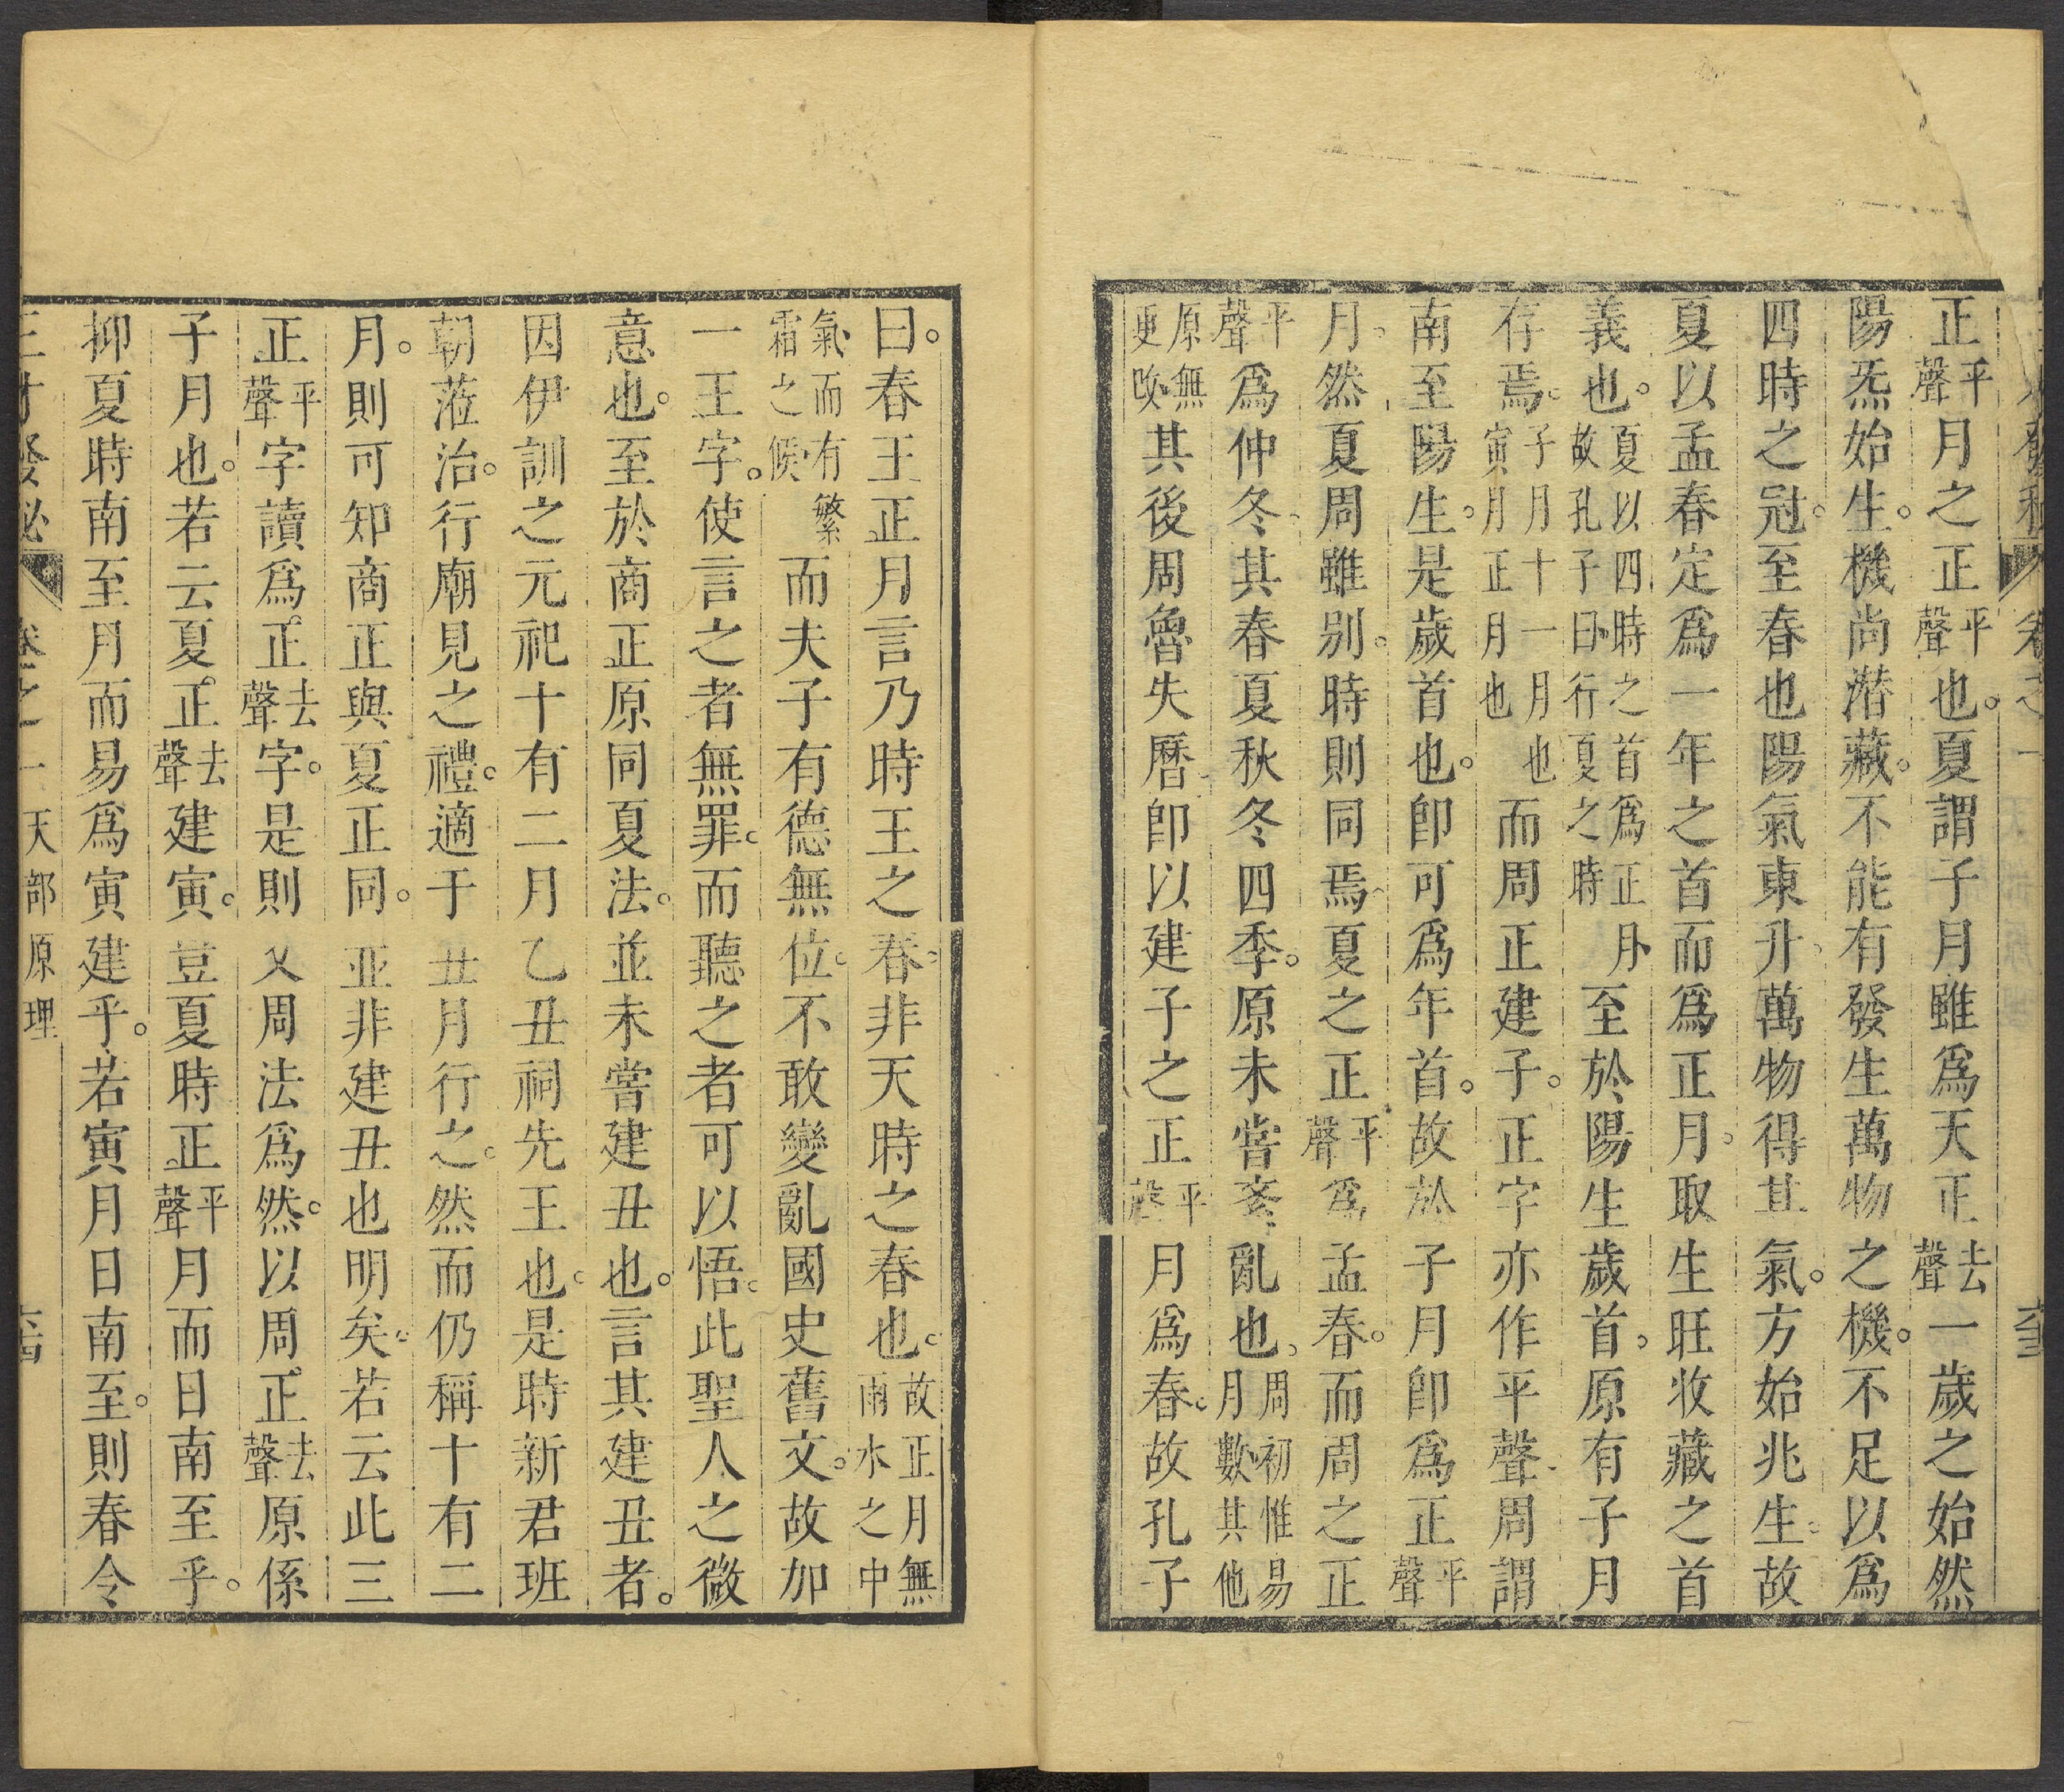 正平聲月之正平聲也。夏謂子月雖爲天正去聲一歲之始然
陽炁始生。機尚潛藏。不能有發生萬物之機。不足以爲
四時之冠。至春也陽氣東升、萬物得其氣。方始兆生。故
夏以孟春定爲一年之首而爲正月。取生旺收藏之首
義也。夏以四時之首爲正月故孔子曰行夏之時至於陽生歲首。原有子月
存焉。子月十一月也寅月正月也而周正建子。正字亦作平聲周謂
南至陽生。是歲首也。卽可爲年首。故於子月卽爲正平聲
月。然夏周雖别。時則同焉。夏之正平聲爲孟春。而周之正
平聲爲仲冬。其春夏秋冬四季。原未嘗紊亂也。周初惟易月數其他
原無更改其後周魯失曆。卽以建子之正平聲月爲春。故孔子
曰。春王正月言乃時王之春。非天時之春也。故正月無雨水之中
氣而有繁霜之候而夫子有德無位。不敢變亂國史舊文。故加
一王字。使言之者無罪。而聽之者可以悟。此聖人之微
意也。至於商正原同夏法。並未嘗建丑也。言其建丑者。
因伊訓之元祀十有二月乙丑祠先王也。是時新君班
朝蒞治。行廟見之禮。適于丑月行之。然而仍稱十有二
月。則可知商正與夏正同。並非建丑也明矣。若云此三
正平聲字讀爲正去聲字。是則又周法爲然。以周正去聲原係
子月也。若云夏正去聲建寅。豈夏時正平聲月而日南至乎。
抑夏時南至月而易爲寅建乎。若寅月日南至。則春令
三才發秘 卷之一 天部 原理 六十四